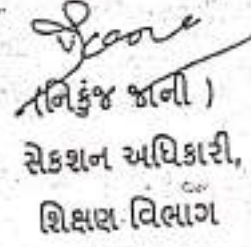 (નિકુંજ જાની )
સેક્શન અધિકારી,
શિક્ષણ વિભાગ